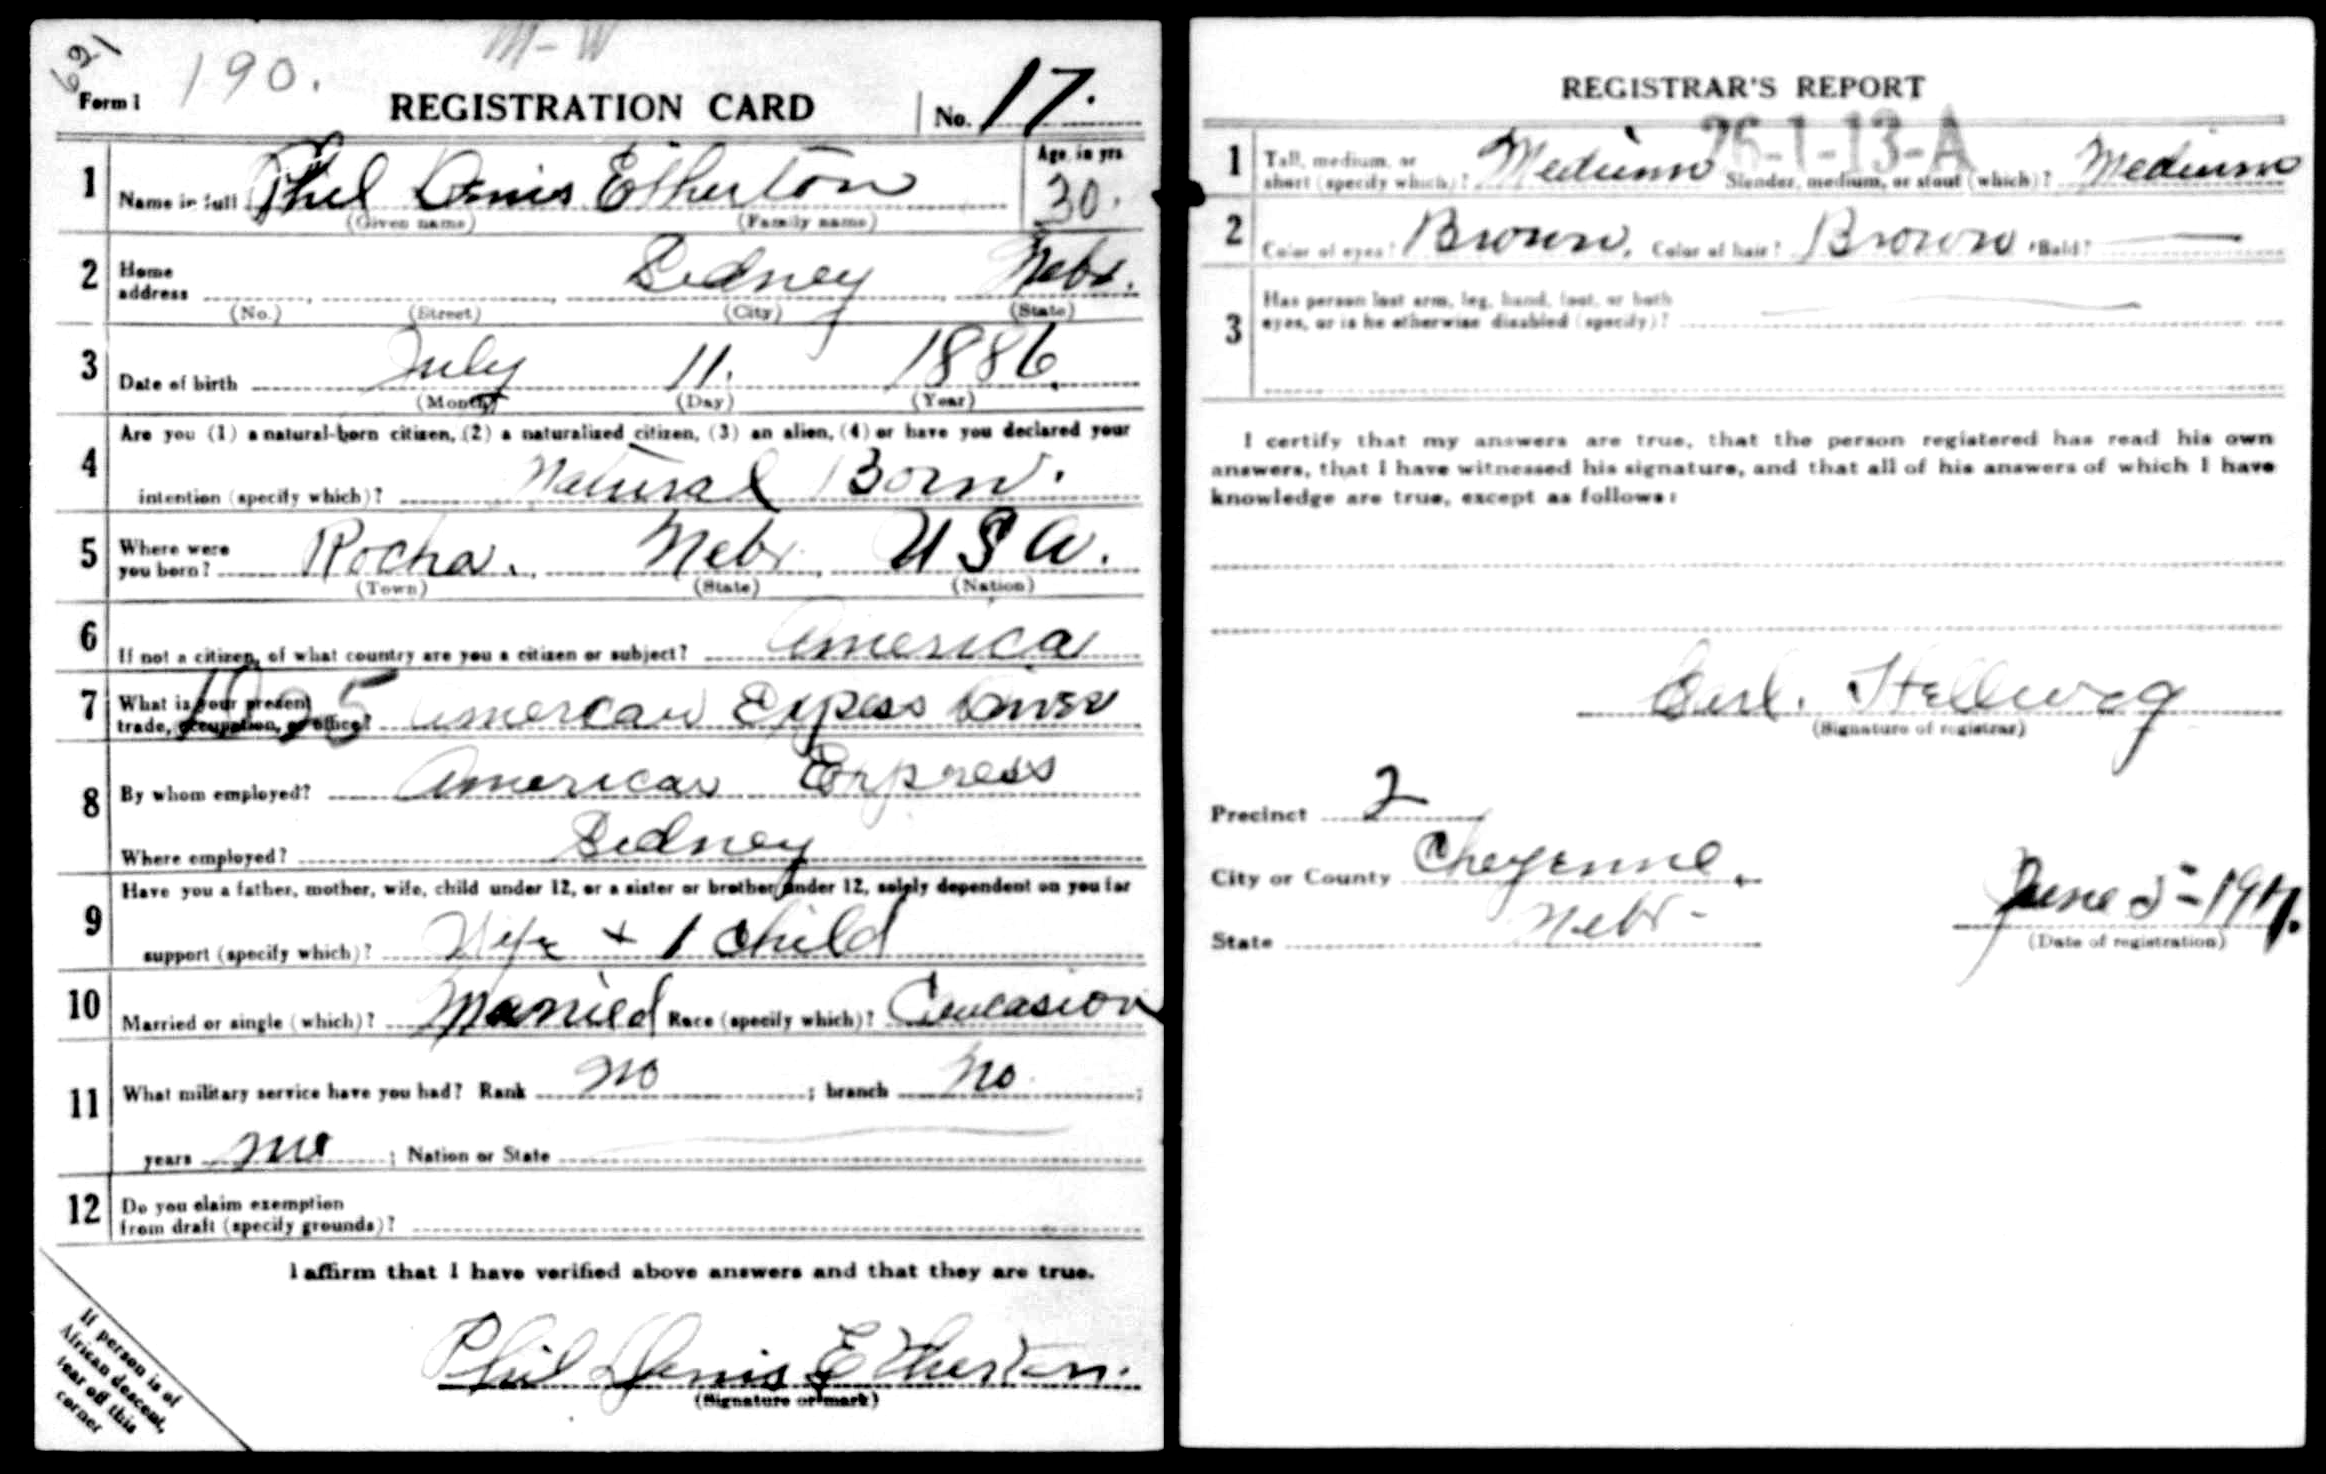 621
190.
M-W
Form 1 REGISTRATION CARD No. 17.
1 Name in full Phil Denis Etherton Age, in yrs 30.
(Given name) (Family name)
2 Home address Sidney Nebr.
(No.) (Street) (City) (State)
3 Date of birth July 11. 1886
(Month) (Day) (Year)
4 Are you (1) a natural-born citizen, (2) a naturalized citizen, (3) an alien, (4) or have you declared your
intention (specify which)? Natural Born.
5 Where were you born? Rocha. Nebr. U S A.
(Town) (State) (Nation)
6 If not a citizen, of what country are you a citizen or subject? America
7 What is your present
trade, occupation, or office? American Expess Driver
8 By whom employed? American Express
Where employed? Sidney
9 Have you a father, mother, wife, child under 12, or a sister or brother under 12, solely dependent on you for
support (specify which)? Wife + 1 child
10 Married or single (which)? Married Race (specify which)? Caucasion
11 What military service have you had? Rank no ; branch no ;
years no ; Nation or State
12 Do you claim exemption
from draft (specify grounds)?
I affirm that I have verified above answers and that they are true.
Phil Denis Etherton.
(Signature or mark)
If person is of
African descent,
tear off this
corner
REGISTRAR'S REPORT
26-1-13-A
1 Tall, medium, or
short (specify which)? Medium Slender, medium, or stout (which)? Medium
2 Color of eyes? Brown. Color of hair? Brown Bald?
3 Has person lost arm, leg, hand, foot, or both
eyes, or is he otherwise disabled (specify)?
I certify that my answers are true, that the person registered has read his own
answers, that I have witnessed his signature, and that all of his answers of which I have
knowledge are true, except as follows:
Hellweg
(Signature of registrar)
Precinct 2
City or County Cheyenne
State Nebr- June 5-1917.
(Date of registration)